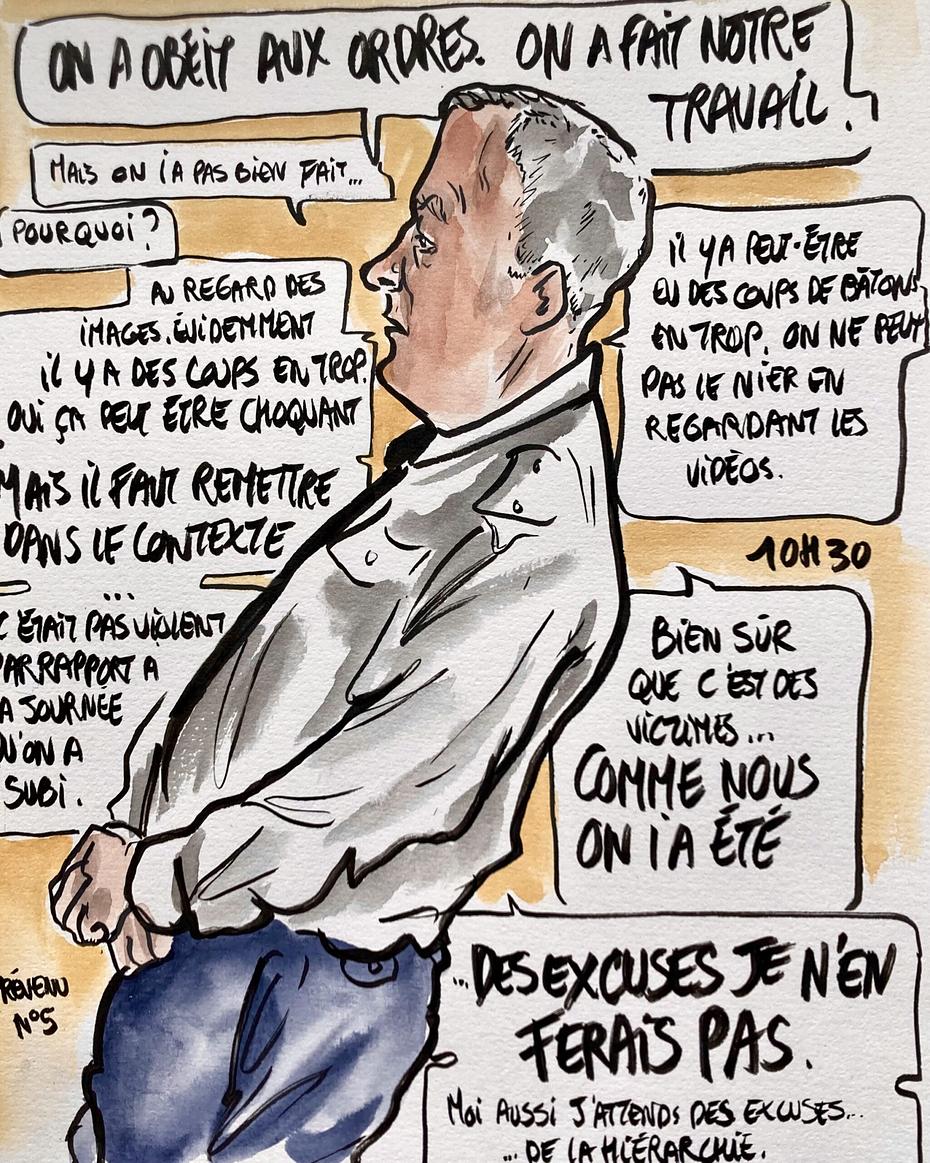 ON A OBÉIT AUX ORDRES. ON A FAIT NOTRE
TRAVAIL.
MAIS ON L'A PAS BIEN FAIT...
POURQUOI?
AU REGARD DES
IMAGES, ÉVIDEMMENT
IL Y A DES COUPS EN TROP.
OUI ÇA PEUT ÊTRE CHOQUANT
MAIS IL FAUT REMETTRE
DANS LE CONTEXTE
...
C'ÉTAIT PAS VIOLENT
PAR RAPPORT A
LA JOURNÉE
QU'ON A
SUBI.
PRÉVENU
N°5
IL Y A PEUT-ÊTRE
EU DES COUPS DE BÂTONS
EN TROP. ON NE PEUT
PAS LE NIER EN
REGARDANT LES
VIDÉOS.
10H30
BIEN SÛR
QUE C'EST DES
VICTIMES...
COMME NOUS
ON L'A ÉTÉ
...DES EXCUSES JE N'EN
FERAIS PAS.
MOI AUSSI J'ATTENDS DES EXCUSES...
... DE LA HIÉRARCHIE.